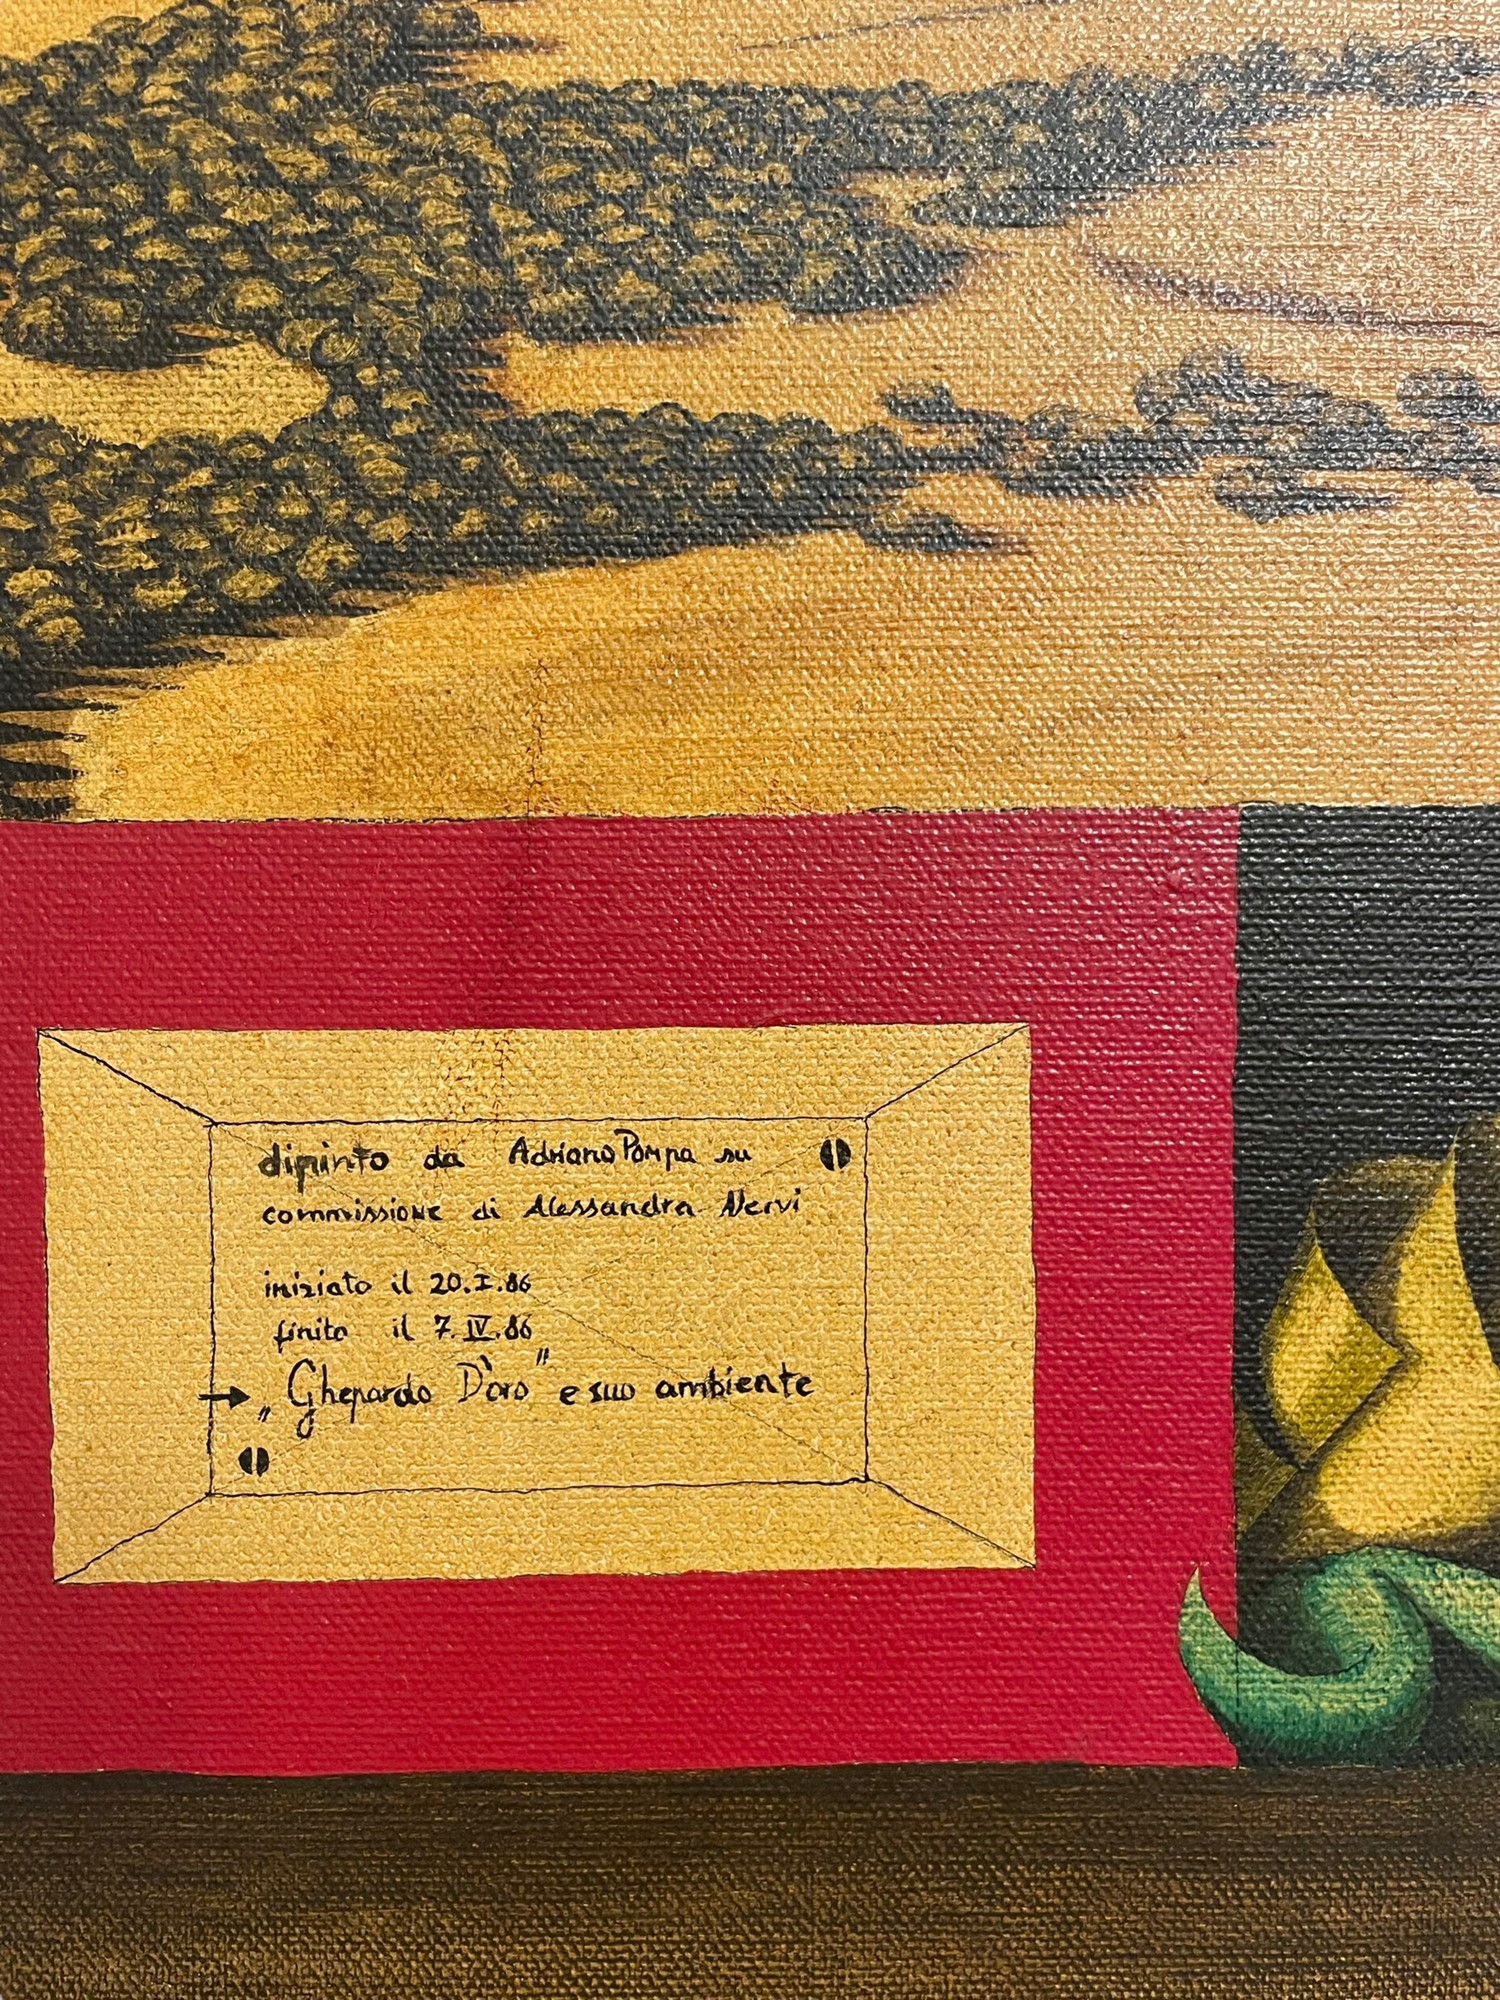 dipinto da Adriano Pompa su
commissione di Alessandra Nervi
iniziato il 20.I.86
finito il 7.IV.86
→ „Ghepardo D'oro" e suo ambiente